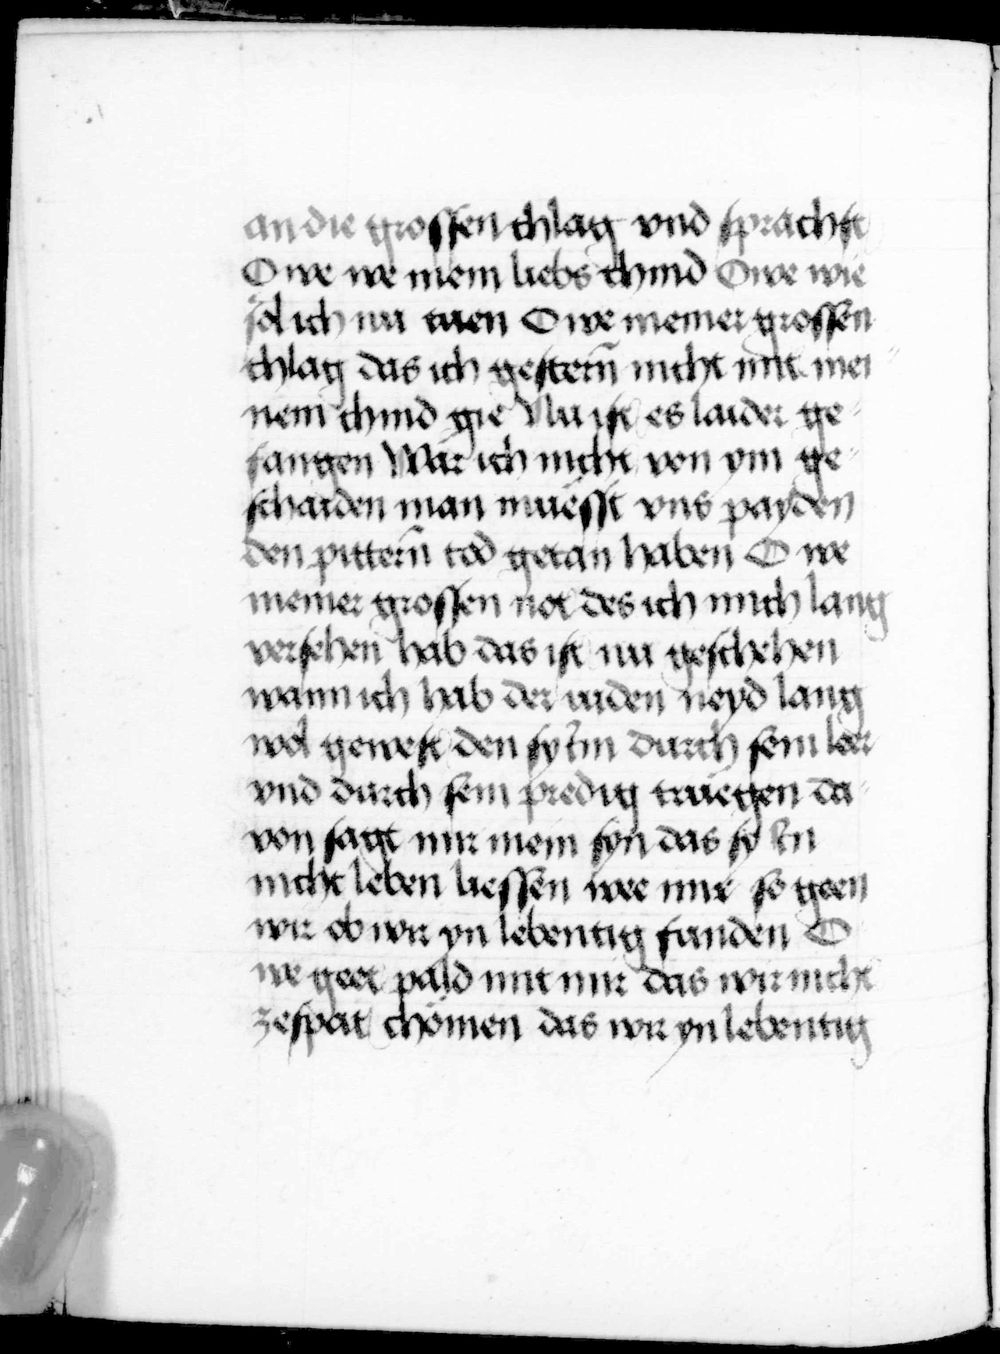 an die grossen chlag vnd sprachst
O we we mein liebs chind O we wie
sol ich nu tuen O we meiner grossen
chlag das ich gestern̄ nicht mit mei⸗
nem chind gie Nu ist es laider ge⸗
fangen Wär ich nicht von ym ge⸗
schaiden man muesst vns payden
den pittern̄ tod getan haben O we
meiner grossen not des ich mich lang
versehen hab das ist nu geschehen
wann ich hab der iuden neyd lang
wol gewest den sy im durch sein leer
vnd durch sein predig truegen da⸗
von sagt mir mein syn das sy in
nicht leben liessen wee mir so geen
wir ob wir yn lebentig funden O
we geet pald mit mir das wir nicht
zespat chömen das wir yn lebentig